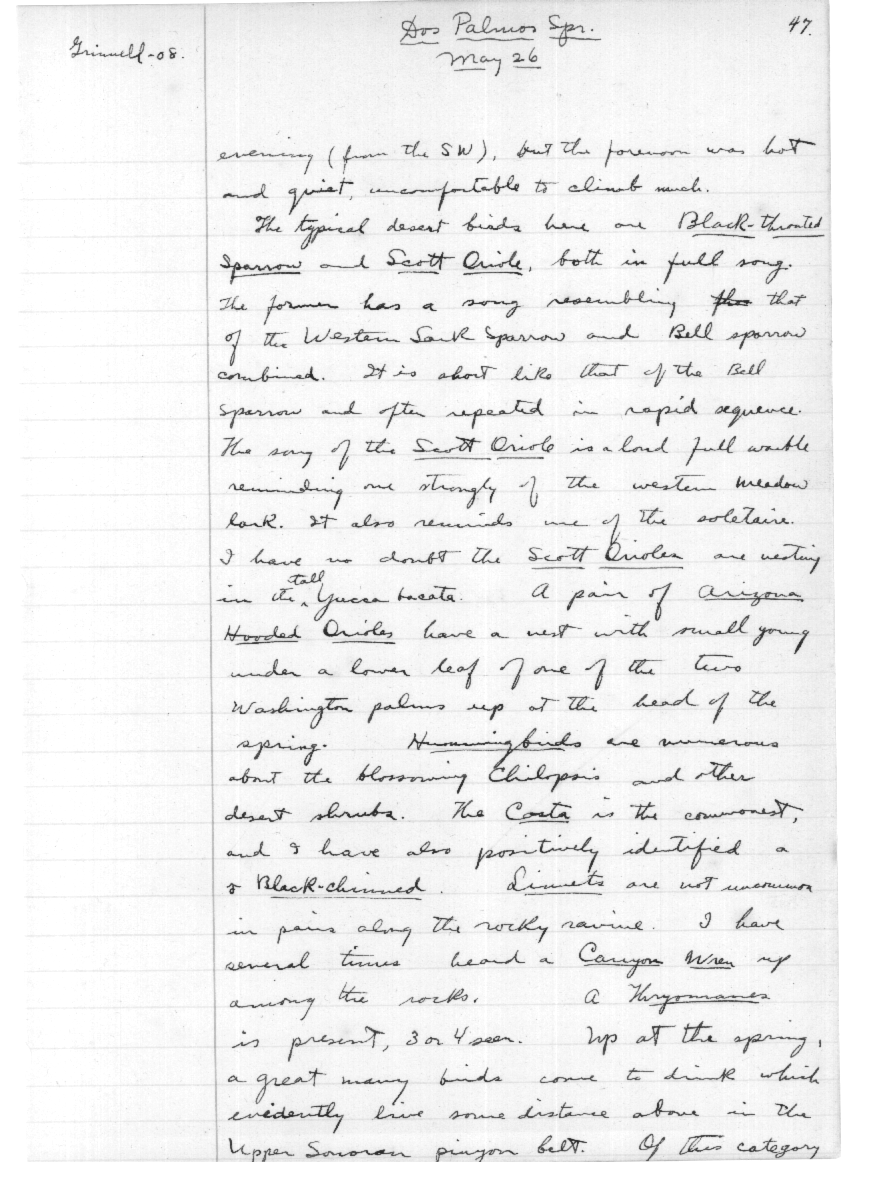 Grinnell-08.
Dos Palmos Spr.
47.
May 26
evening (from the SW), but the forenoon was hot
and quiet, uncomfortable to climb much.
The typical desert birds here are Black-throated
Sparrow and Scott Oriole, both in full song.
The former has a song resembling that
of the Western Lark Sparrow and Bell sparrow
combined. It is short like that of the Bell
Sparrow and often repeated in rapid sequence.
The song of the Scott Oriole is a loud full warble
reminding one strongly of the western meadow
lark. It also reminds me of the soletaire.
I have no doubt the Scott Orioles are nesting
in the tall Yucca bacata. A pair of Arizona
Hooded Orioles have a nest with small young
under a lower leaf of one of the two
Washington palms up at the head of the
spring. Hummingbirds are numerous
about the blossoming Chilopsis and other
desert shrubs. The Costa is the commonest,
and I have also positively identified a
♂ Black-chinned. Linnets are not uncommon
in pairs along the rocky ravine. I have
several times heard a Canyon Wren up
among the rocks. A Thryomanes
is present, 3 or 4 seen. Up at the spring,
a great many birds come to drink which
evidently live some distance above in the
Upper Sonoran pinyon belt. Of this category